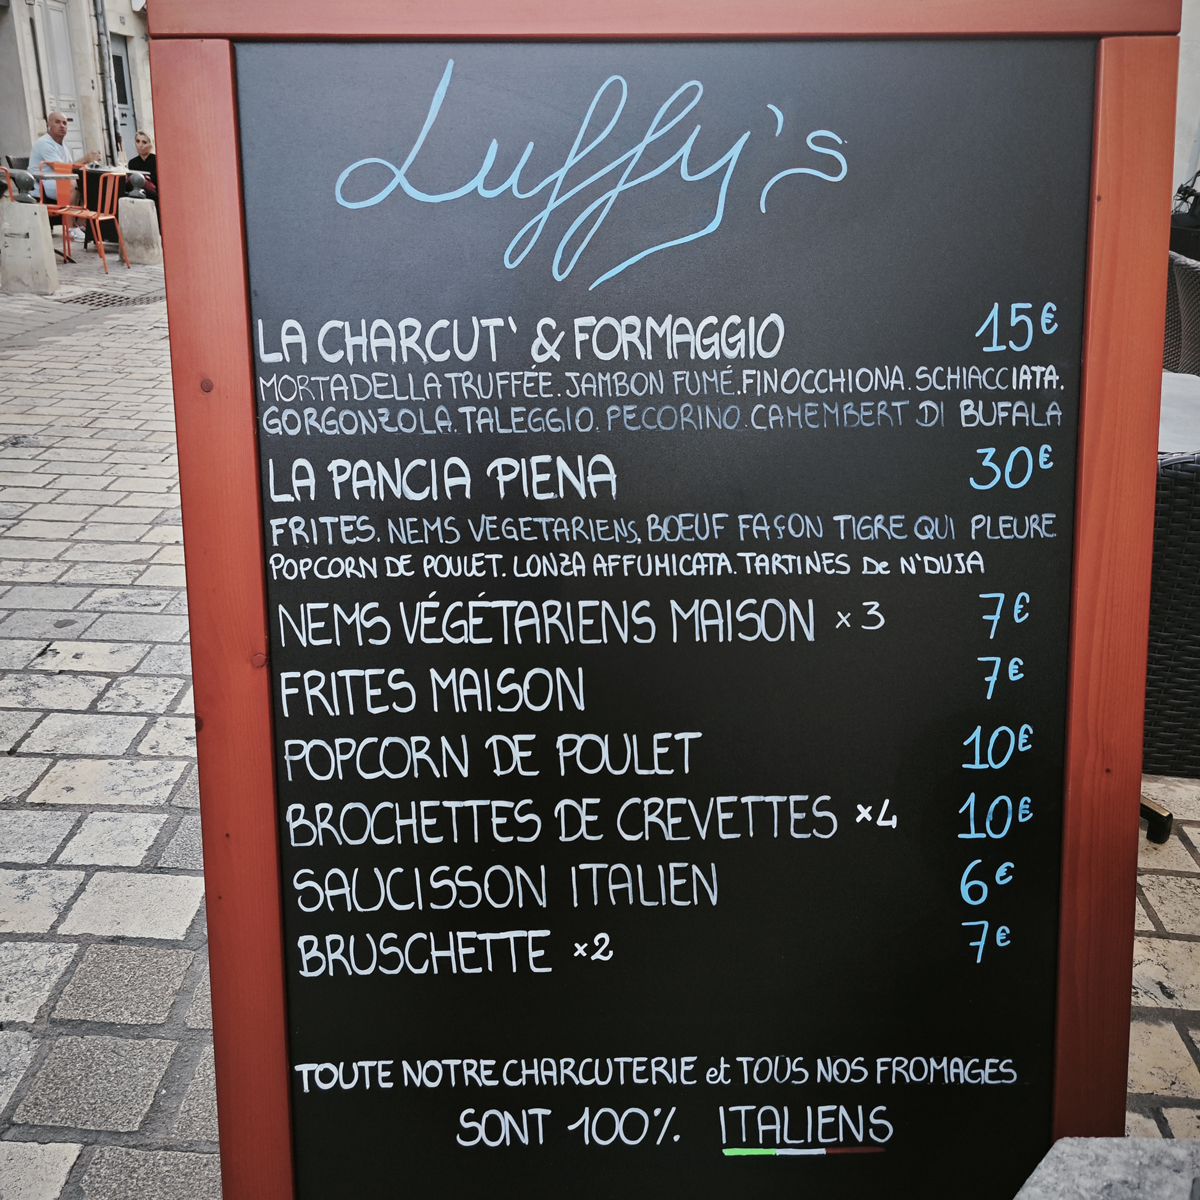 Luffy's
LA CHARCUT' & FORMAGGIO 15€
MORTADELLA TRUFFÉE. JAMBON FUMÉ. FINOCCHIONA. SCHIACCIATA.
GORGONZOLA. TALEGGIO. PECORINO. CAMEMBERT DI BUFALA
LA PANCIA PIENA 30€
FRITES. NEMS VEGETARIENS, BŒUF FAÇON TIGRE QUI PLEURE
POPCORN DE POULET. LONZA AFFUMICATA. TARTINES De N'DUJA
NEMS VÉGÉTARIENS MAISON x3 7€
FRITES MAISON 7€
POPCORN DE POULET 10€
BROCHETTES DE CREVETTES x4 10€
SAUCISSON ITALIEN 6€
BRUSCHETTE x2 7€
TOUTE NOTRE CHARCUTERIE et TOUS NOS FROMAGES
SONT 100% ITALIENS